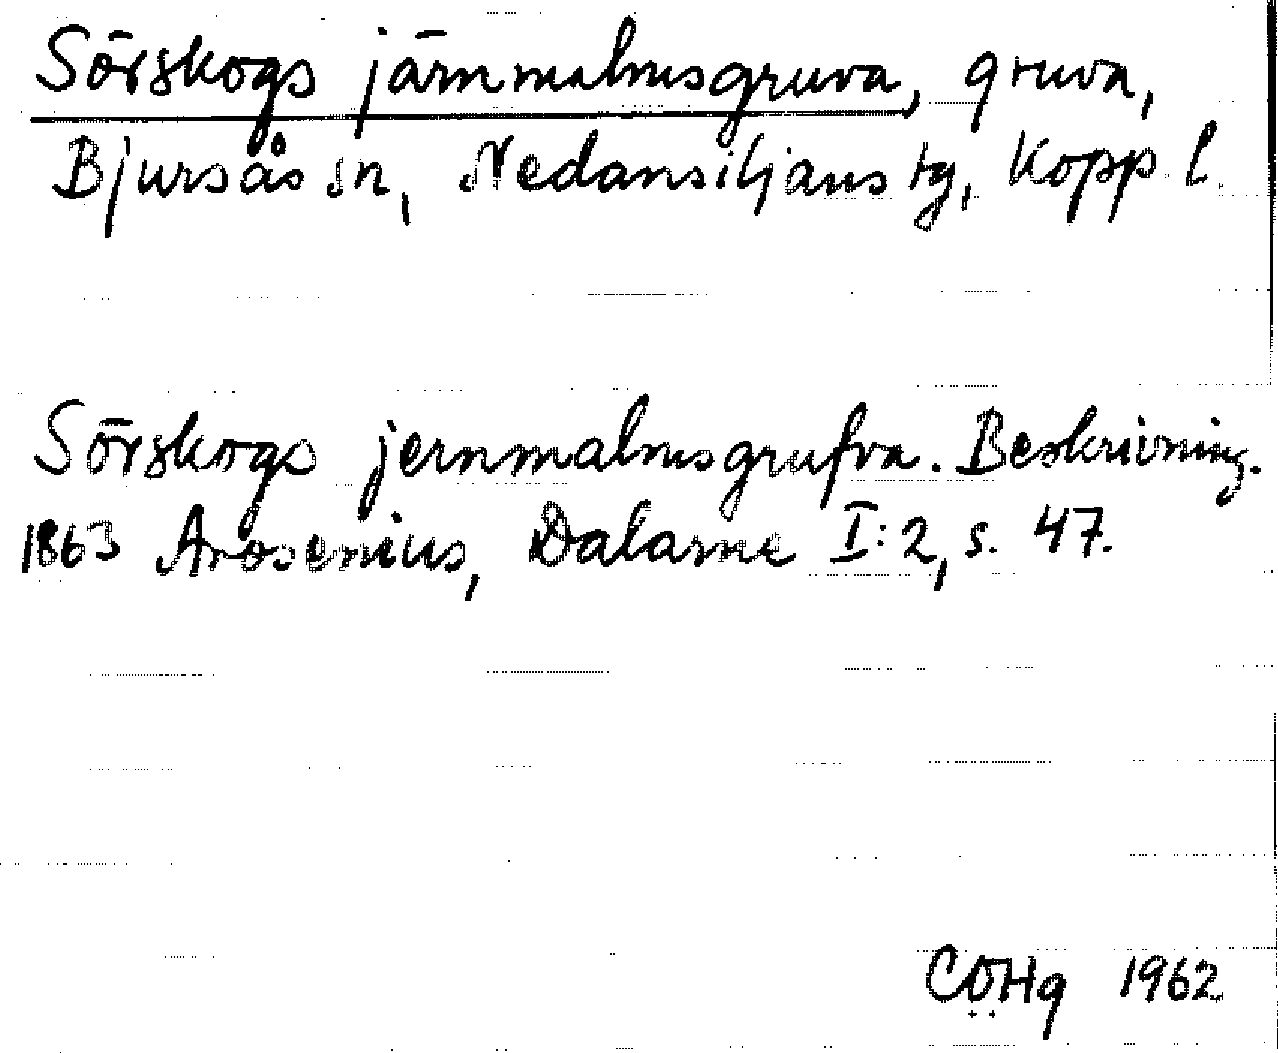 Sörskogs järnmalmsgruva, gruva,
Bjursås sn, Nedansiljans tg, Kopp. l.
Sörskogs jernmalmsgrufva. Beskrivning.
1863 Arosenius, Dalarne I:2, s. 47.
COHg 1962